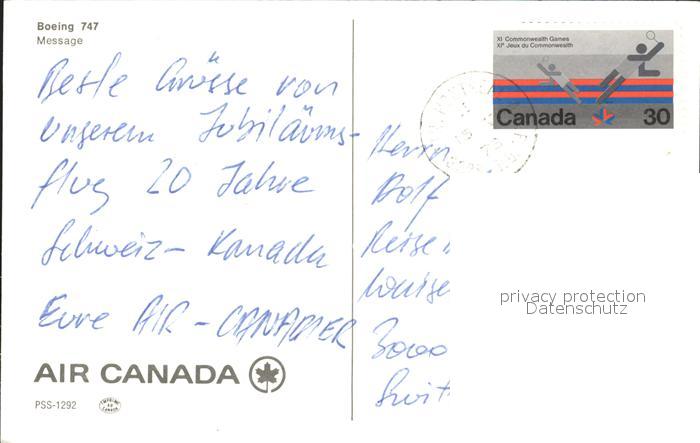 Boeing 747
Message
Beste Grüsse von
unserem Jubiläums-
flug 20 Jahre
Schweiz - Kanada
Eure AIR-CANADIER
AIR CANADA
PSS-1292
XI Commonwealth Games
XIes Jeux du Commonwealth
Canada 30
Herrn
Reise
3000
privacy protection
Datenschutz